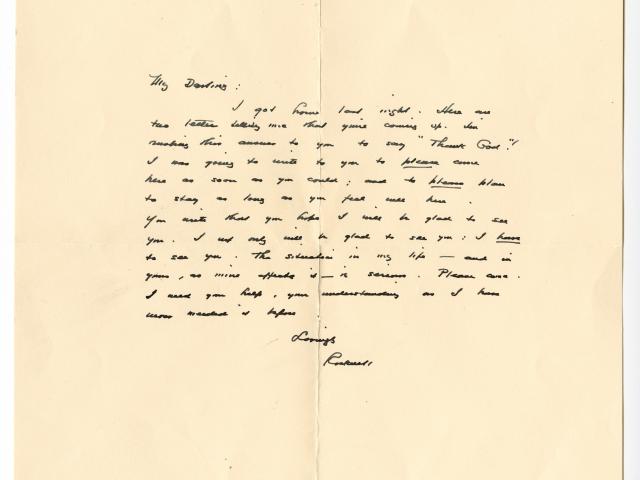 My Darling:
I got home last night. Here are
two letters telling me that you're coming up. I'm
rushing this answer to you to say "Thank God"!
I was going to write to you to please come
here as soon as you could; and to please plan
to stay as long as you feel well here.
You write that you hope I will be glad to see
you. I not only will be glad to see you: I have
to see you. The situation in my life — and in
yours, as mine affects it — is serious. Please come.
I need your help, your understanding as I have
never needed it before
Lovingly
Rockwell